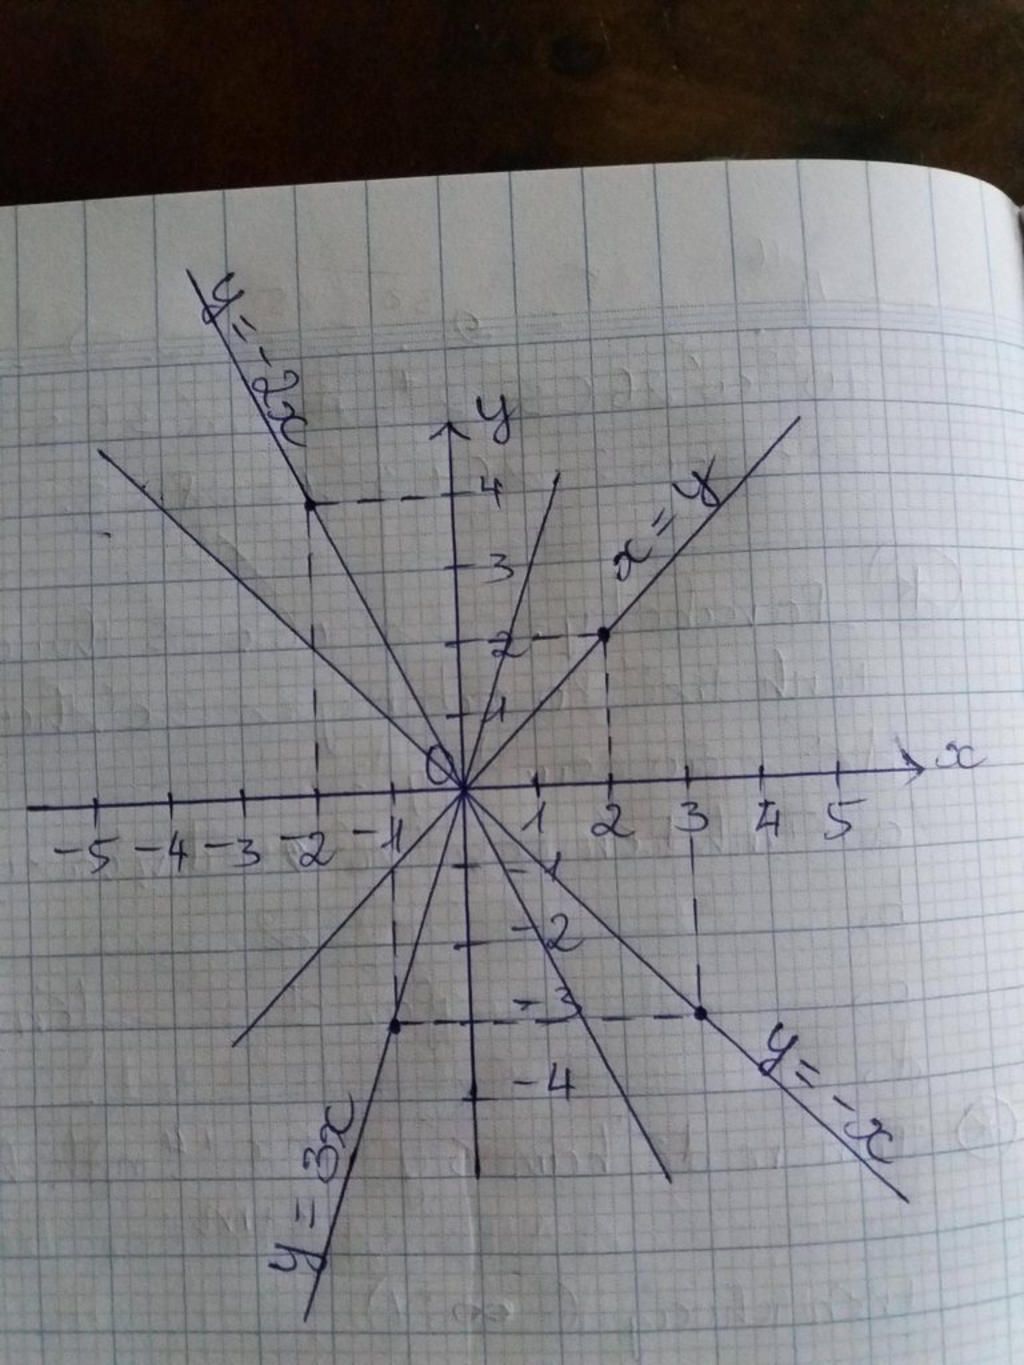 y = -2x
y
4
x = y
3
2
1
O
x
-5 -4 -3 -2 -1 1 2 3 4 5
-1
-2
-3
-4
y = -x
y = 3x